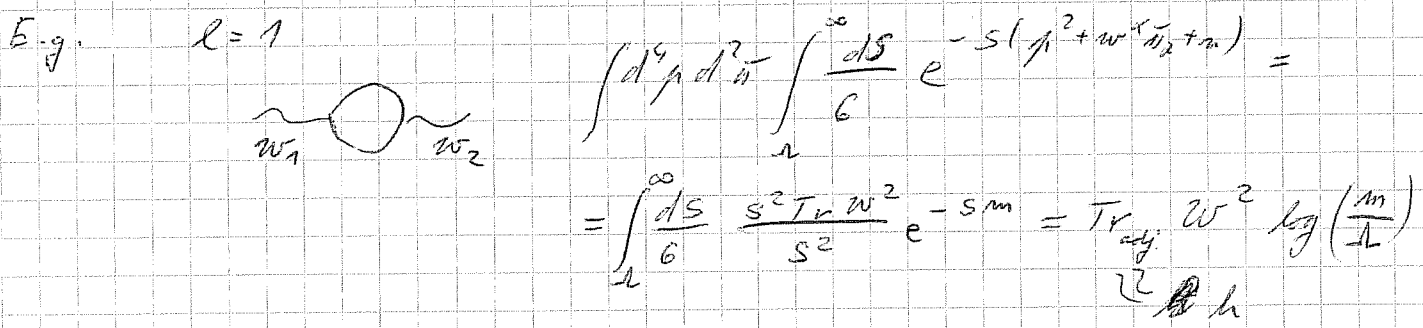 E.g. l = 1
w₁ w₂
∫ d⁴p d²π ∫_Λ^∞ ds/6 e^{-s(p² + w^α π_α + m)} =
= ∫_Λ^∞ ds/6 s² Tr w²/s² e^{-sm} = Tr_{adj} W² log(m/Λ)
h